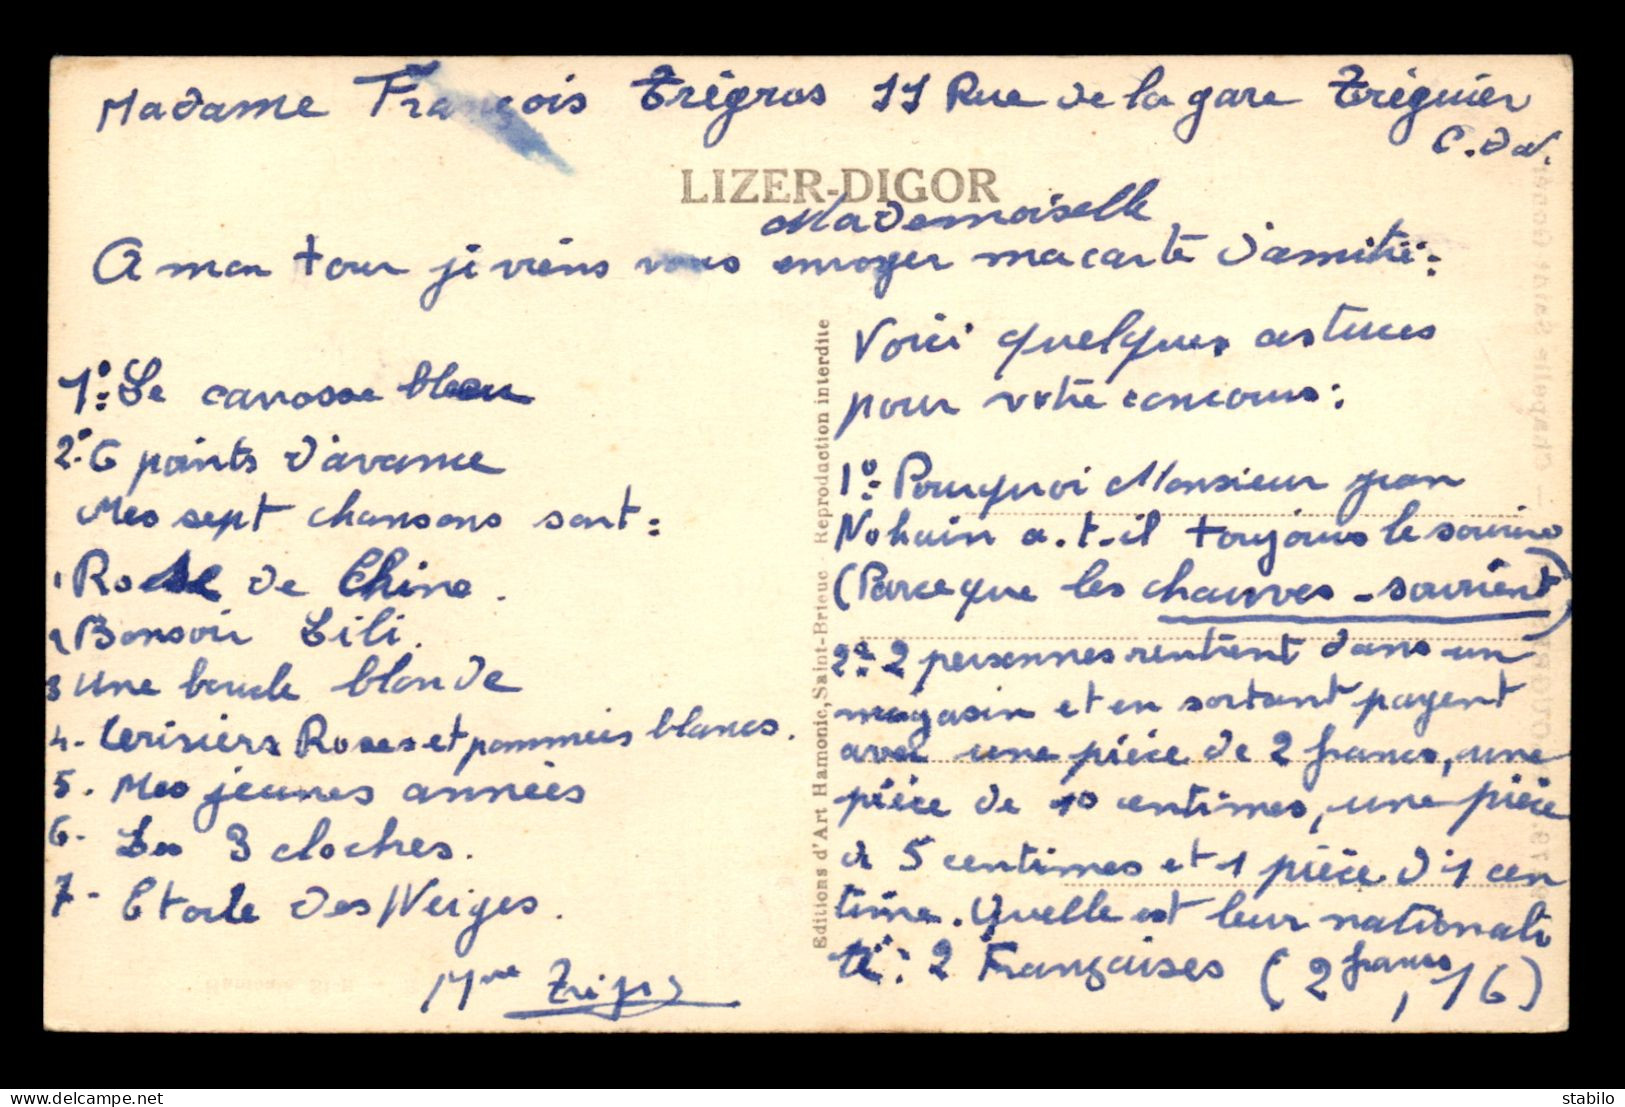 Madame François Trégros 11 Rue de la gare Tréguier
C.du.
LIZER-DIGOR
Mademoiselle
A mon tour je viens vous envoyer ma carte d'amitié:
1°: Le carrosse bleu
2° 6 points d'avance
Mes sept chansons sont:
1 Rose de Chine.
2 Bonsoir Lili.
3 Une boucle blonde
4. Cerisiers Roses et pommiers blancs.
5. Mes jeunes années
6. Les 3 cloches.
7- Etoile des Neiges.
Mme
Editions d'Art Hamonic, Saint-Brieuc Reproduction interdite
Voici quelques astuces
pour votre concours:
1°: Pourquoi Monsieur jean
Nohain a-t-il toujours le sourire
(Parce que les chauves-sourient)
2°: 2 personnes rentrent dans un
magasin et en sortant payent
avec une pièce de 2 francs, une
pièce de 10 centimes, une pièce
de 5 centimes et 1 pièce d'1 cen
time. Quelle est leur nationali
té: 2 Françaises (2 francs, 16)
delcampe.net
stabilo